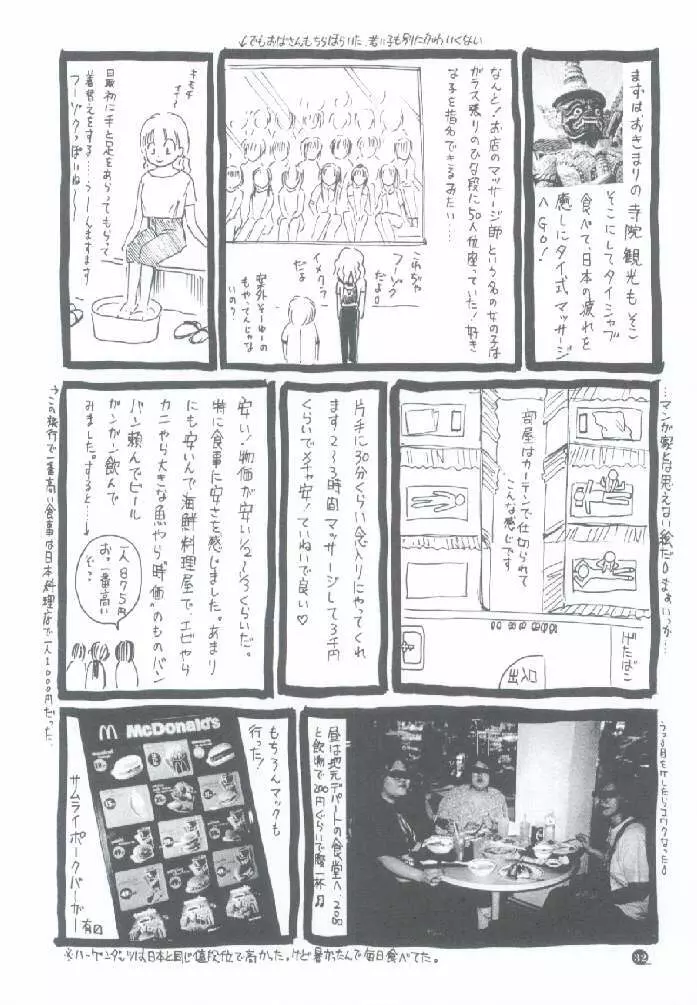 ↓でもおばさんもちらほらいた、若い子も別にかわいくない
まずはおきまりの寺院観光も そこ
そこにしてタイシャブ
食べて、日本の疲れを
癒しにタイ式マッサージ
へGO!
なんと!お店のマッサージ師という名の女の子は
ガラス張りのひな段に50人位座っていた!好き
な子を指名できるみたい…
これじゃ
フーゾク
だよ
イメクラ
だよ
案外そーゆーの
もやってんじゃな
いの?
キモチ
イイ〜
最初に手と足をあらってもらって
着替えをする…う〜んますます
フーゾクっぽいね〜
…マンガ家とは思えない絵だ まぁいっか…
部屋はカーテンで仕切られて
こんな感じです
げたばこ
出入口
片手に30分くらい念入りにやってくれ
ます 2〜3時間マッサージして3千円
くらいでメチャ安!ていねいで良い♡
安い!物価が安い1/2〜1/3くらいだ。
特に食事に安さを感じました。あまり
にも安いんで海鮮料理屋で、エビやら
カニやら大きな魚やら"時価"のものバン
バン頼んでビール
ガンガン飲んで
みました。すると…→
一人875円
お。一番高い
ぞっ
→この旅行で一番高い食事は日本料理店で一人1000円だった。
昼は地元デパートの食堂へ 200
と飲物で200円ぐらいで腹一杯♫
McDonald's
もちろんマックも
行った!
サムライポークバーガー
有り
※ハーゲンダッツは日本と同じ値段位で高かった。けど暑かったんで毎日食べてた。
32